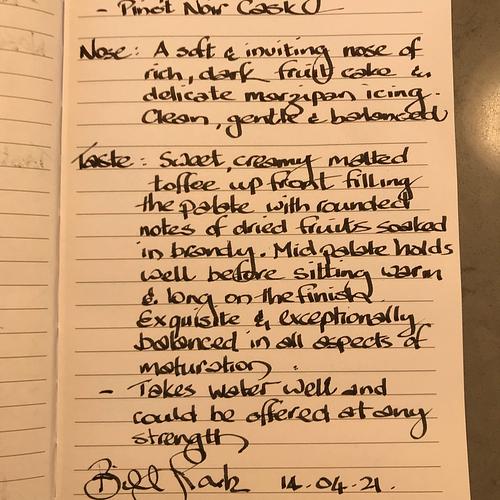 - Pinot Noir Cask
Nose: A soft & inviting nose of
rich, dark fruit cake &
delicate marzipan icing.
Clean, gentle & balanced
Taste: Sweet, creamy malted
toffee up front filling
the palate with rounded
notes of dried fruits soaked
in brandy. Mid palate holds
well before sitting warm
& long on the finish.
Exquisite & exceptionally
balanced in all aspects of
maturation.
- Takes water well and
could be offered at any
strength
14.04.21.